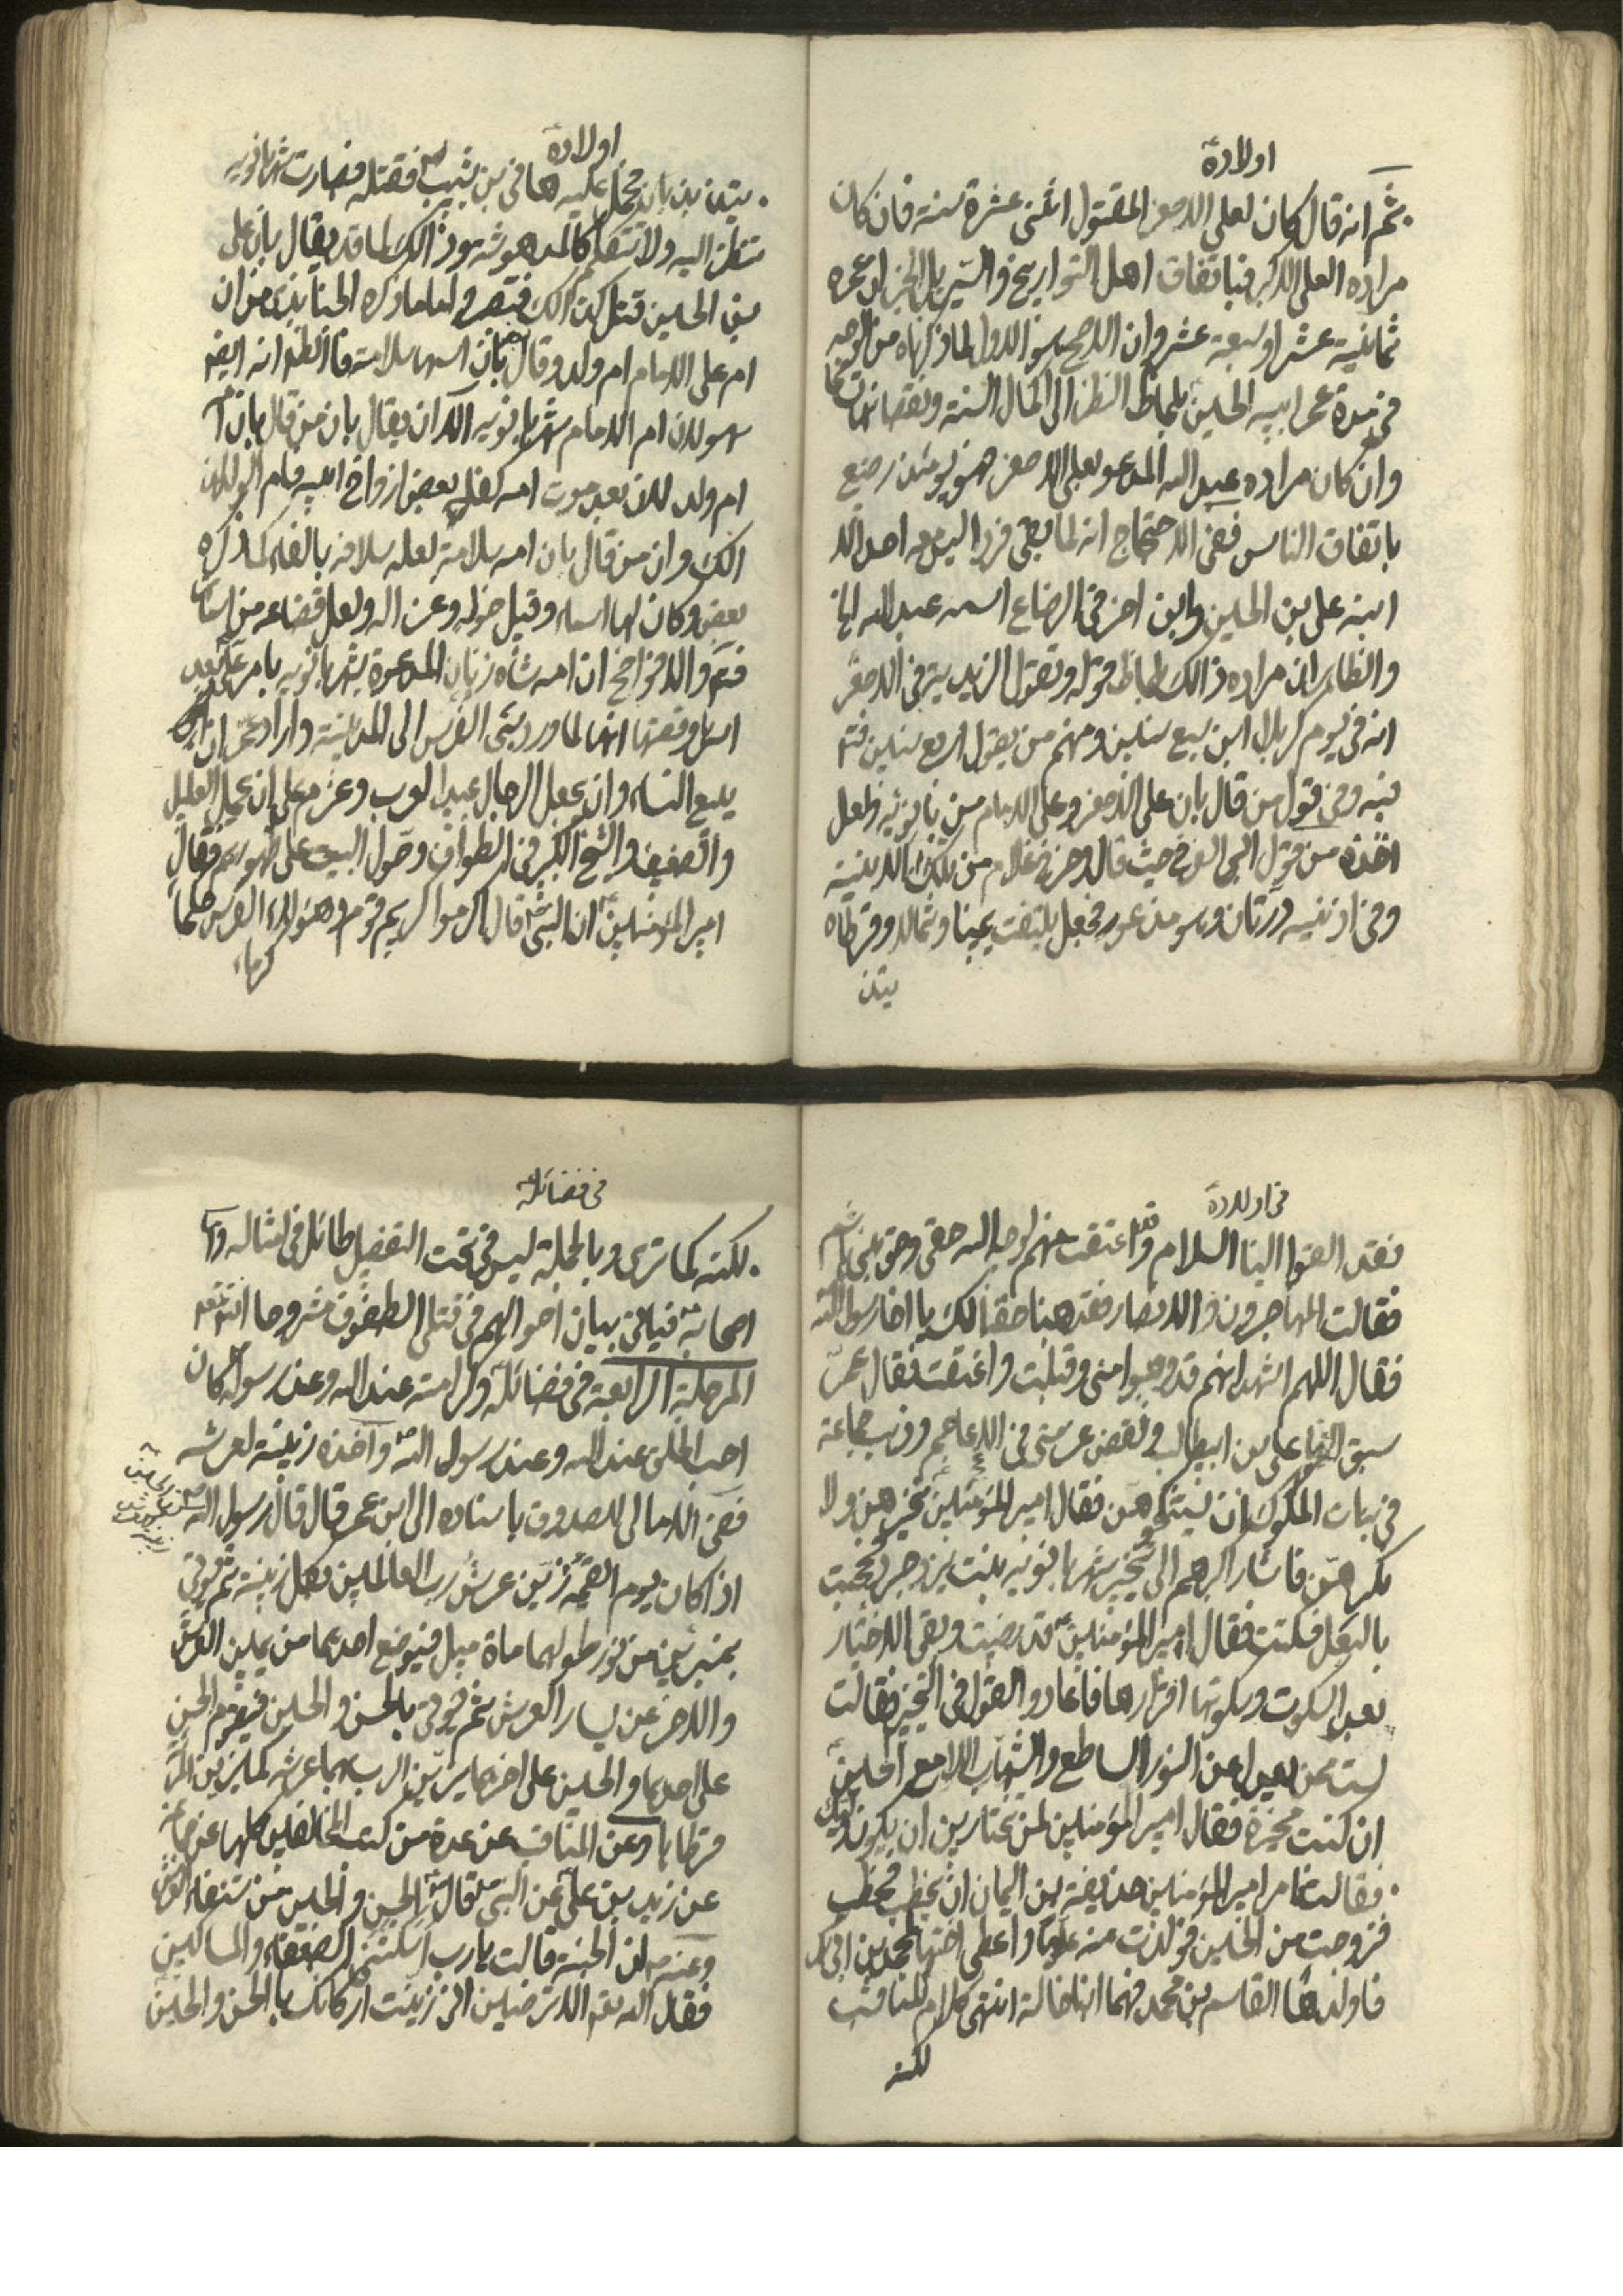 اولاده
ثم انه قال كان لعلي الاصغر المقتول اثنى عشرة سنة فان كان
مراده العلى الاكبر فباتفاق اهل التواريخ والسير بل الخبر ان عمره
ثمانية عشر او سبعة عشر وان الاصح هو الاول لما ذكرناه من الوجه
فى مدة عمر ابيه الحسين بلحاظ النظر الى اكمال السنة ونقصانها
وان كان مراده عبد الله المدعو بعلى الاصغر فهو يومئذ رضيع
باتفاق الناس ففى الاحتجاج انه لما بقى فردا ليس معه احد الا
ابنه على بن الحسين وابن اخر فى الرضاع اسمه عبد الله الخ
والظاهر ان مراده ذالك بلحاظ قوله وتقول الزيدية فى الاصغر
انه فى يوم كربلا ابن سبع سنين ومنهم من يقول اربع سنين فتم
فيه وفى قول من قال بان على الاصغر وعلى الامام من بانويه ولعل
اخذه من قول ابى الفرج حيث قال وخرج غلام من تلك الابنية
وفى اذنيه درتان وهو مذعور فجعل يلتفت يمينا وشمالا وقرطاه
يتذ
اولاده
يتذبذبان فحمل عليه هانى بن ثبيت لعن فقتله فصارت شهربانويه
تنظر اليه ولا تتكلم كالمدهوشه وذالك لما قد يقال بان على
بن الحسين قتل كذالك فتبصر ولما ما ذكره الجنابذى من ان
ام على الامام ام ولد وقال بان اسمها سلامة فالظم انه ايضا
سهو لان ام الامام شهربانويه الا ان يقال بان من قال بان
ام ولد لان بعد موت امه كفله بعض ازواج ابيه
الك وان من قال بان امه سلامة لعله سلافه بالفاء لما ذكره
بعض وكان لها اسماء وقيل خوله وغزاله ولعل
فتم والافواضح ان امه شاه زنان المدعوة بشهربانويه بامر على بعد
اسل وقصتها انها لما ورد سبى الفرس الى المدينة واراد عمر ان
يبيع النساء وان يجعل الرجال عبيد العرب وعزم على ان يحمل العليل
والضعيف والشيخ الكبير فى الطواف وحول البيت على ظهورهم فقال
امير المؤمنين ان النبى قال اكرموا كريم قوم وهؤلاء الفرس حكما
كرماء
فى اولاده
فقد القوا الينا السلام وقد اعتقت منهم لوجه الله حقى وحق بنى هاشم
فقالت المهاجرون والانصار قد وهبنا حقنا لك يا اخا رسول الله
فقال اللهم اشهد انهم قد وهبوا منى وقبلت واعتقت فقال عمر
سبق اليها على بن ابيطالب ونقض عزمتى فى الاعاجم ورغب جماعة
فى بنات الملوك ان يستنكحوهن فقال امير المؤمنين نخيرهن ولا
نكرههن فاشار اكبرهم الى تخيير شهربانويه بنت يزدجرد فحجبت
بالبعل فسكتت فقال امير المؤمنين قد رضيت وبقى الاختيار
بعد السكوت وسكوتها اقرارها فاعادوا القول فى التخيير فقالت
لست ممن يعدل عن النور الساطع والشهاب اللامع الحسين
ان كنت مخيرة فقال امير المؤمنين لمن تختارين ان يكون وليك
فقالت انت فامر امير المؤمنين حذيفة بن اليمان ان يخطب فخطب
فزوجت من الحسين فولدت منه عليا واعطى اختها محمد بن ابى بكر
فاولدها القاسم بن محمد فهما ابنا خالة انتهى كلام المناقب
لكنه
فى فضائله
لكنه كما ترى وبالجملة ليس فى تحت التفصيل طائل فى امثاله واما
اصحابه فياتى بيان احوالهم فى قتلى الطفوف مشروحا انشئ
المرحلة الرابعة فى فضائله وكرامته عند الله وعند رسوله كان
احب الخلق عند الله وعند رسول الله وآخذه زينة لعرشه
ففى الامالى للصدوق باسناده الى ابن عمر قال قال رسول الله
اذا كان يوم القيمة زين عرش رب العالمين بكل زينة ثم يؤتى
بمنبرين من نور طولهما ماة ميل فيوضع احدهما من يمين العرش
والاخر عن يسار العرش ثم يؤتى بالحسن والحسين فيقوم الحسن
على احدهما والحسين على اخرهما يزين الرب بهما عرشه كما يزين المرئة
قرطاها وعن المناقب عن عدة من كتب المخالفين كلها عن
عن زيد بن على عن النبى قال الحسن والحسين من شنفاء العرش
وعنه ان الجنة قالت يارب اسكنتنى الضعفاء والمساكين
فقال الله تعم الا ترضين انى زينت اركانك بالحسن والحسين